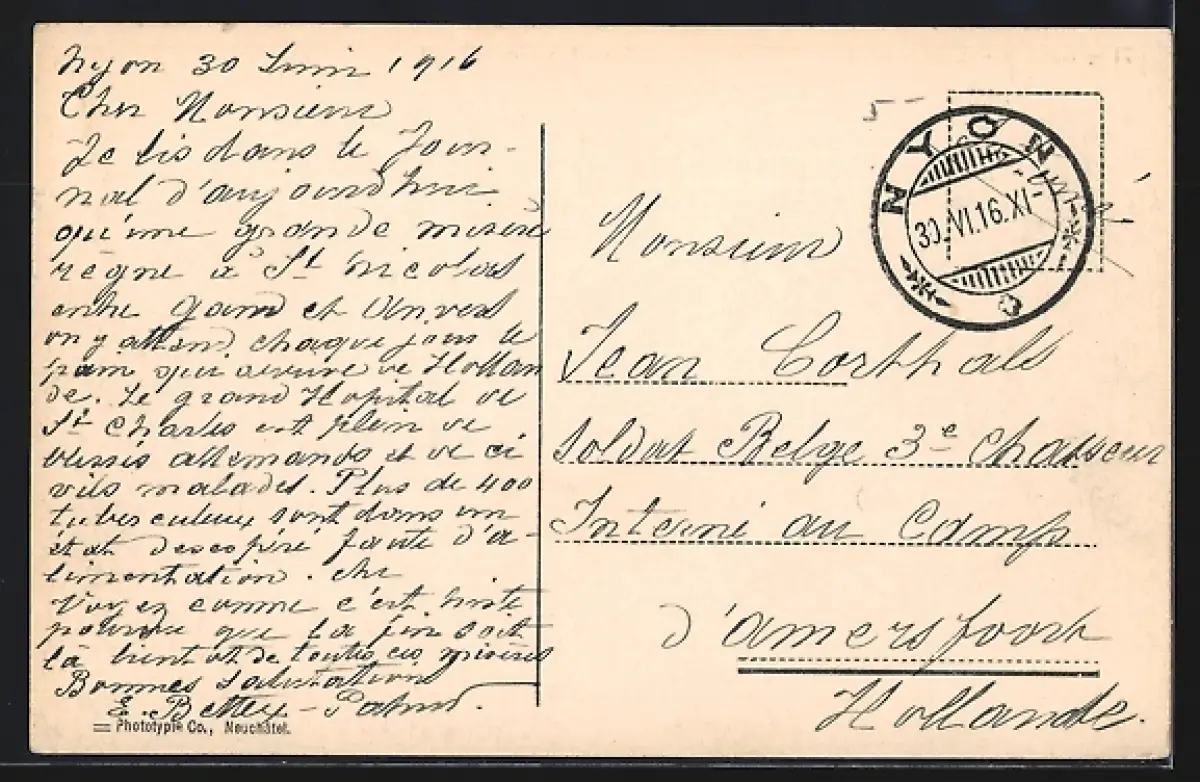 Nyon 30 Juin 1916
Cher Monsieur
Je lis dans le Jour-
nal d'aujourd'hui
qu'une grande misère
règne à St Nicolas
entre Gand et Anvers
on y attend chaque jour le
pain qui arrive de Hollan
de. Le grand Hopital de
St Charles est plein de
blessés allemands et de ci
vils malades. Plus de 400
tuberculeux sont dans un
état désespéré faute d'a-
limentation.
Voyez comme c'est triste
pourvu que la fin soit
là bientot de toutes ces misères
Bonnes salutations
E.
Phototypie Co., Neuchâtel.
5
NYON
30.VI.16.XI-
Monsieur
Jean Corthals
Soldat Belge 3e Chasseur
Interné au Camp
d'Amersfoort
Hollande.